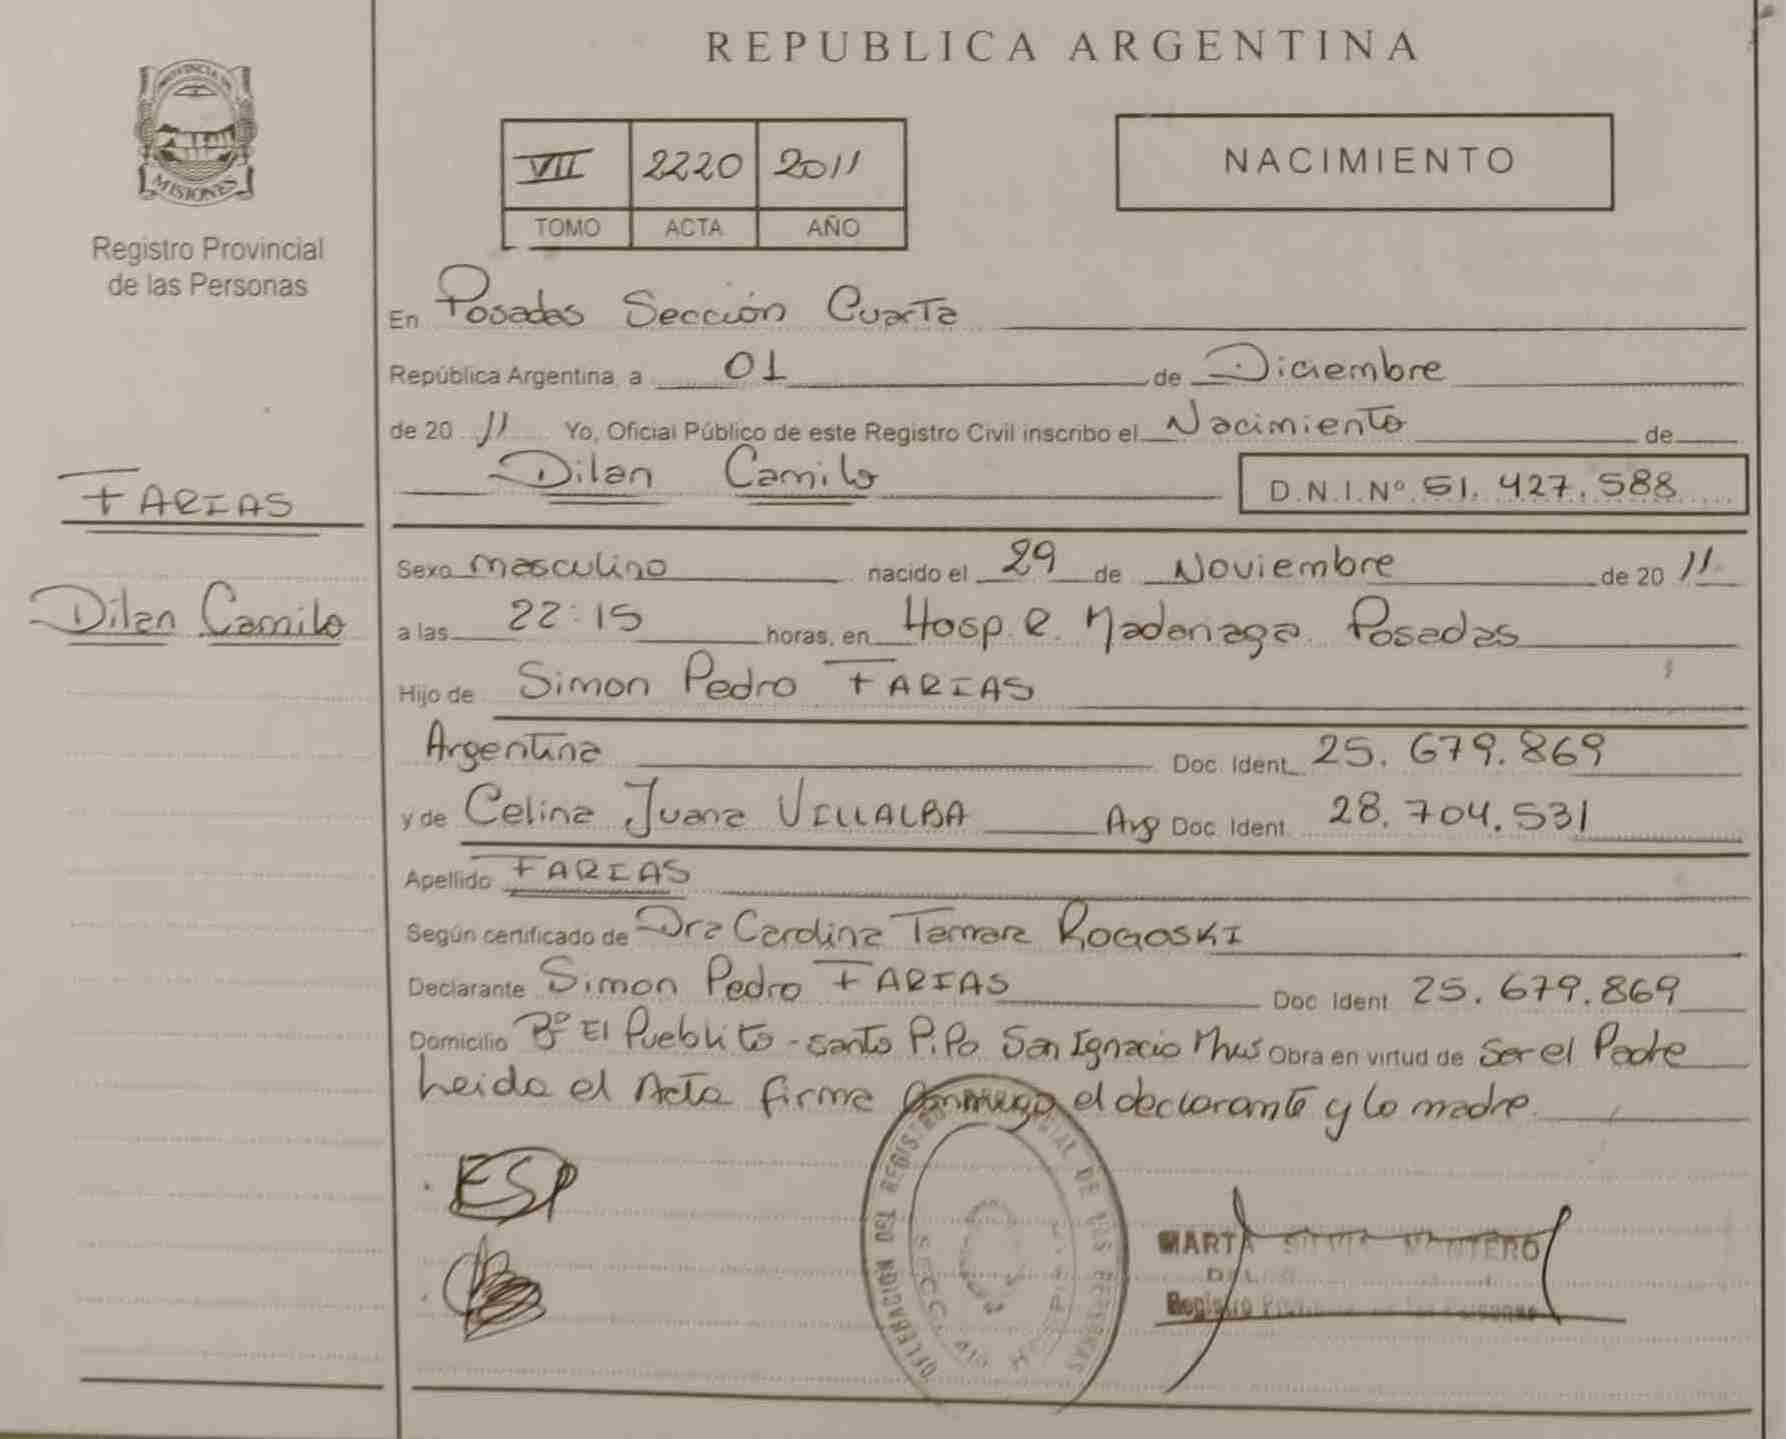 REPUBLICA ARGENTINA
PROVINCIA DE
MISIONES
Registro Provincial
de las Personas
VII 2220 2011
TOMO ACTA AÑO
NACIMIENTO
En Posadas Sección Cuarta
República Argentina, a 01 de Diciembre
de 20 11 Yo, Oficial Público de este Registro Civil inscribo el Nacimiento de
Dilan Camilo D.N.I.Nº 51.427.588
FARIAS
Dilan Camilo
Sexo masculino nacido el 29 de Noviembre de 20 11
a las 22:15 horas, en Hosp. R. Madariaga. Posadas
Hijo de Simon Pedro FARIAS
Argentina Doc. Ident. 25.679.869
y de Celina Juana VILLALBA Arg Doc. Ident. 28.704.531
Apellido FARIAS
Según certificado de Dra Carolina Tamara ROGOSKI
Declarante Simon Pedro FARIAS Doc. Ident. 25.679.869
Domicilio Bº El Pueblito - santo Pipo San Ignacio Mnes Obra en virtud de ser el Padre
Leida el Acta firma conmigo el declarante y la madre.
ESP
MARTA SILVIA MONTERO
Registro